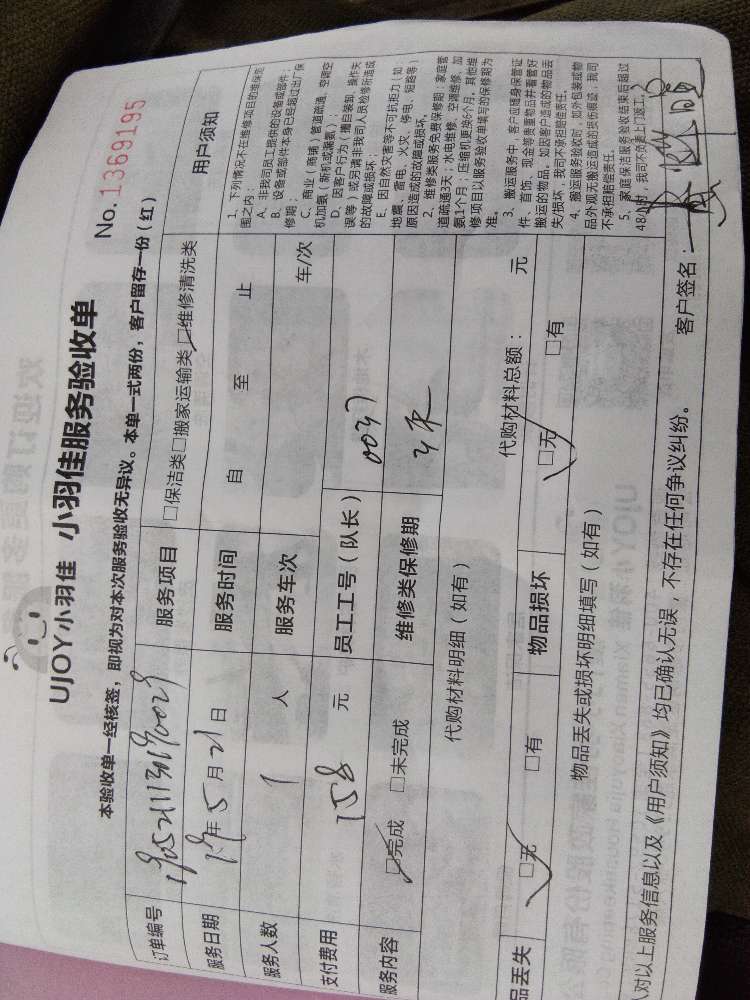 UJOY小羽佳 小羽佳服务验收单
No.1369195
本验收单一经核签，即视为对本次服务验收无异议。本单一式两份，客户留存一份（红）
订单编号
服务项目 □保洁类□搬家运输类□维修清洗类
服务日期 19年5月21日
服务时间 自 至 止
服务人数 1 人
服务车次 车/次
支付费用 158 元
员工工号（队长） 0037
服务内容 □完成 □未完成
维修类保修期 3天
代购材料明细（如有） 代购材料总额： 元
品丢失 □无 □有
物品损坏 □无 □有
物品丢失或损坏明细填写（如有）
用户须知
1、下列情况不在维修项目的维保范
围之内：
A、非我司员工提供的设备或部件；
B、设备或部件本身已经超过出厂保
修期；
C、商业（商铺）管道疏通、空调空
机加氨（新机或漏氨）；
D、因客户行为（擅自装卸、操作失
误等）或另请非我司人员检修所造成
的故障或损坏；
E、因自然灾害等不可抗拒力（如
地震、雷电、火灾、停电、短路等）
原因造成的故障或损坏。
2、维修类服务免费保修期：家庭管
道疏通3天；水电维修、空调维修、加
氨1个月；压缩机更换6个月，其他维
修项目以服务验收单填写的保修期为
准。
3、搬运服务中，客户应随身保管证
件、首饰、现金等贵重物品并看管好
搬运的物品，如因客户造成的物品丢
失/损坏，我司不承担赔偿责任。
4、搬运服务验收时，如外包装或物
品外观无搬运造成的损伤痕迹，我司
不承担赔偿责任。
5、家庭保洁服务验收结束后超过
48小时，我司不负责上门返工。
人对以上服务信息以及《用户须知》均已确认无误，不存在任何争议纠纷。
客户签名：